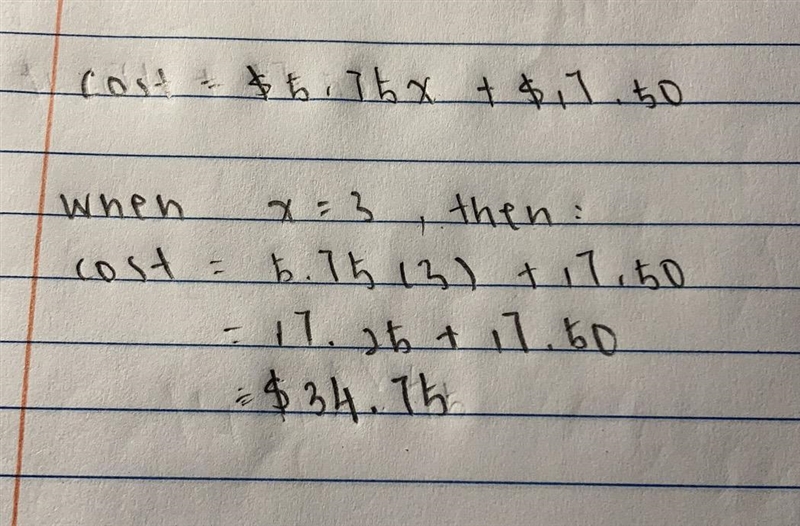 cost = $5.75x + $17.50
when x = 3, then:
cost = 5.75(3) + 17.50
= 17.25 + 17.50
= $34.75